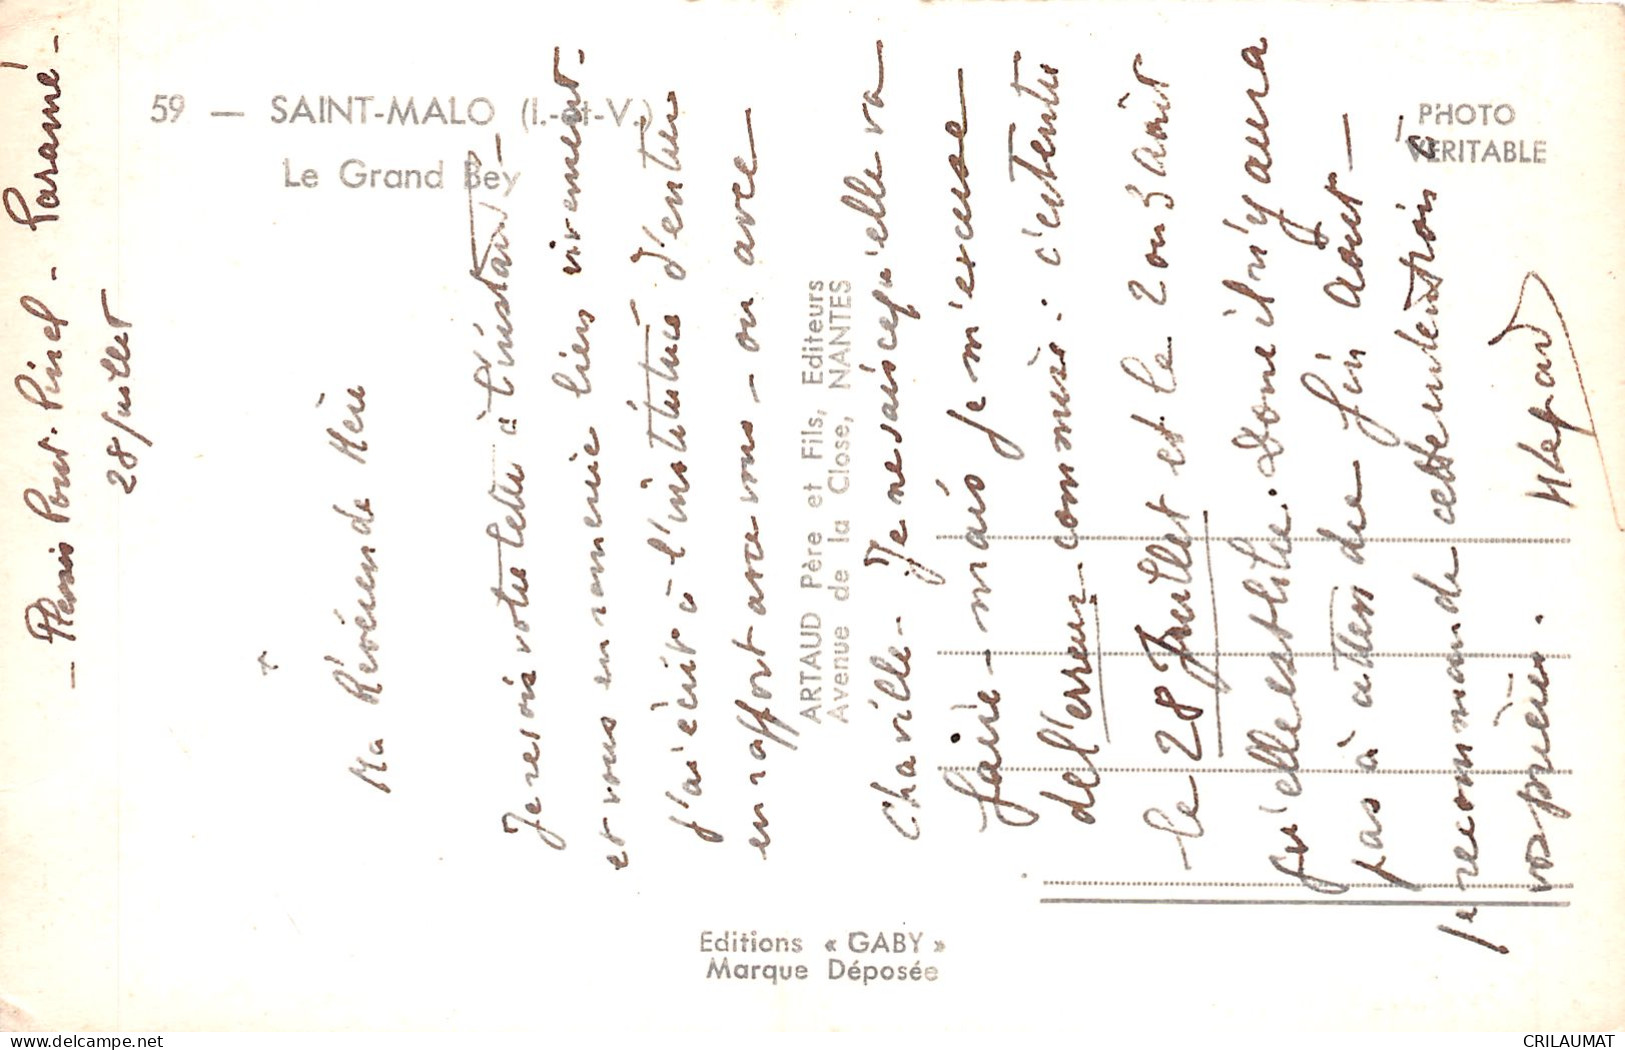 59 — SAINT-MALO (I.-et-V.)
Le Grand Bey
PHOTO
VÉRITABLE
ARTAUD Père et Fils, Editeurs
Avenue de la Close, NANTES
Editions « GABY »
Marque Déposée
— Plessis Pont-Pinel — Paramé —
28 juillet
Ma Révérende Mère
Je reçois votre lettre à l'instant —
et vous en remercie bien vivement —
j'ai écrit à l'institutrice d'entrer
en rapport avec vous — ou avec
Chaville — Je ne sais ce qu'elle va
faire — mais je m'excuse
de l'erreur commise : c'est entre
le 28 Juillet et le 2 ou 3 août
qu'elle est libre. Donc il n'y aura
pas à attendre fin août —
je recommande cette intention à
vos prières.
CRILAUMAT